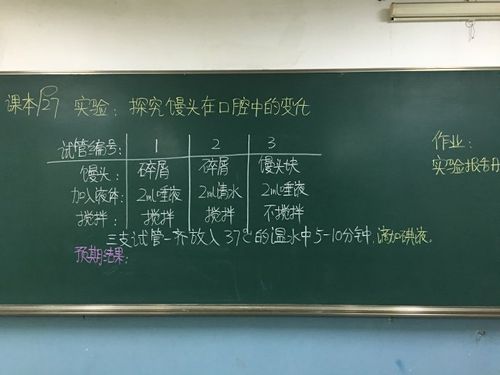 课本P27 实验：探究馒头在口腔中的变化
试管编号： 1 2 3
馒头： 碎屑 碎屑 馒头块
加入液体： 2ml唾液 2ml清水 2ml唾液
搅拌： 搅拌 搅拌 不搅拌
三支试管一齐放入37℃的温水中5-10分钟，滴加碘液。
预期结果：
作业：
实验报告册